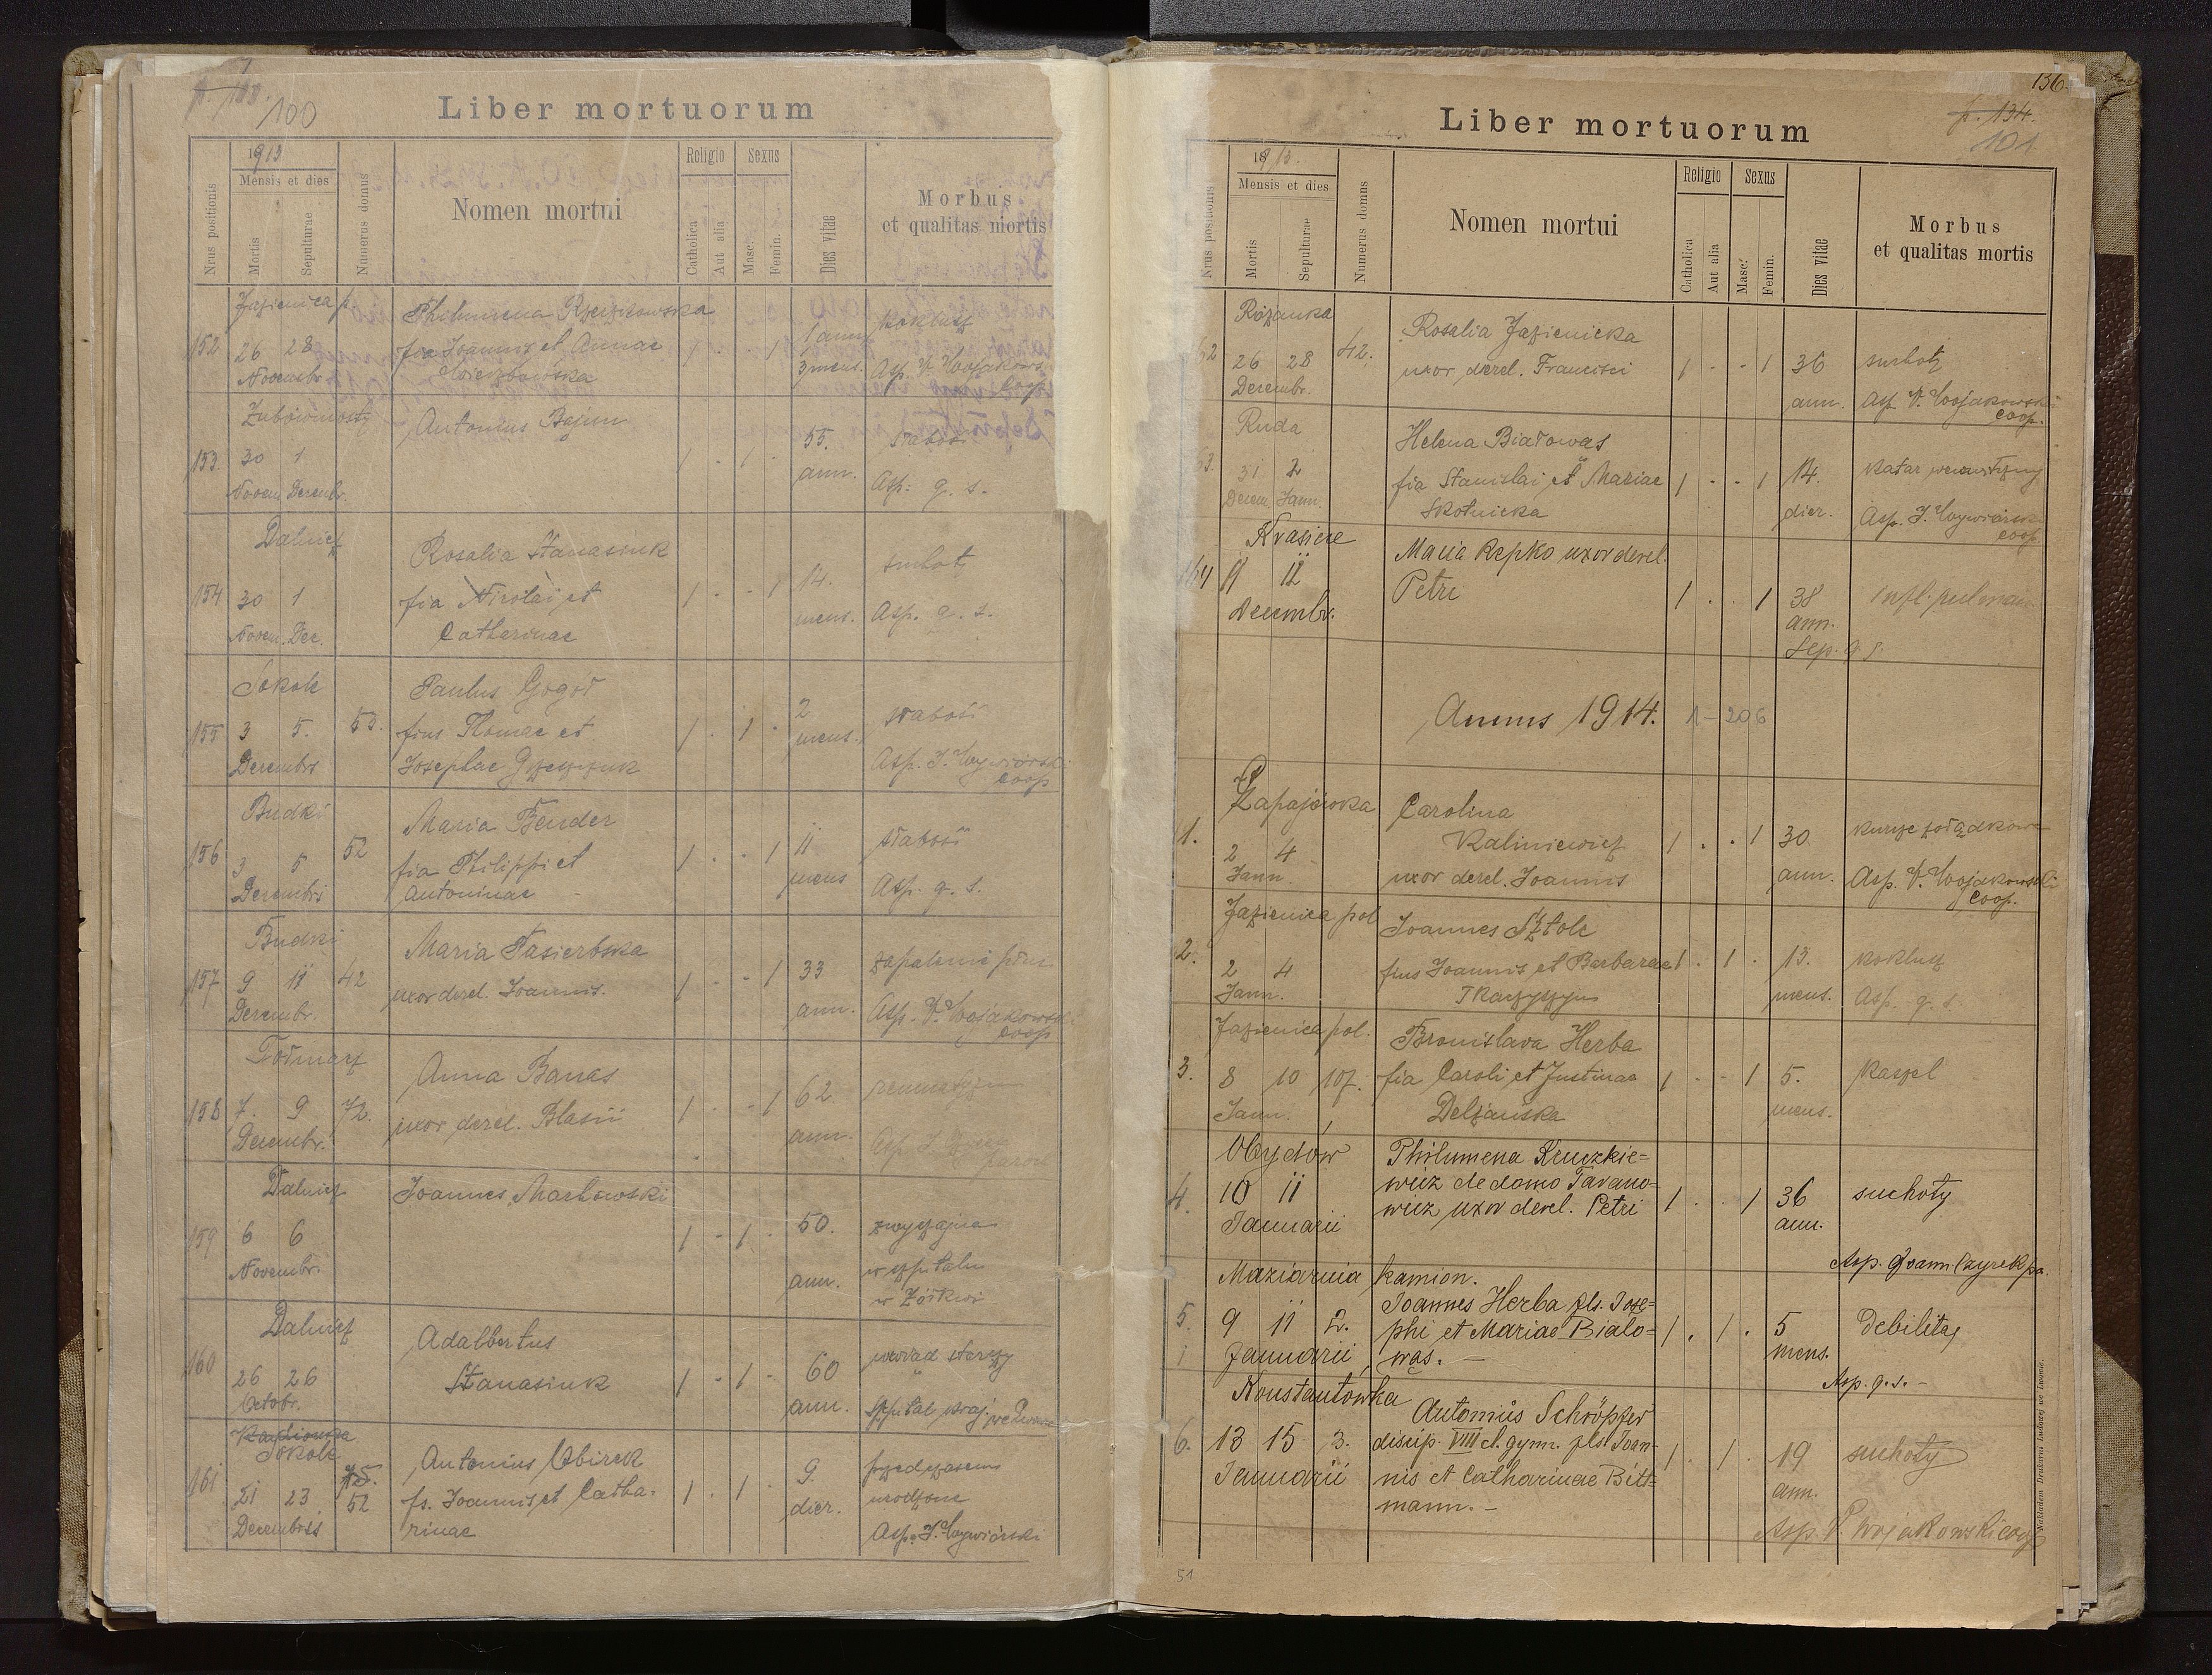 p. 133.
100
Liber mortuorum
Nrus positionis
1913
Mensis et dies
Mortis
Sepulturae
Numerus domus
Nomen mortui
Religio
Catholica
Aut alia
Sexus
Masc.
Femin.
Dies vitae
Morbus
et qualitas mortis
Jazienica p.
Philumena
152 26 28 fia Joannis et Annae 1 - - 1 1 ann koklusz
Novembr. 3 mens. Asp. V. Wojakowski
Coop.
Antonius Bajun
153. 30 1 1 - 1 - 55. słabość
Novem. Decembr. ann. Asp. q. s.
Dalnicz
Rosalia Stanasiuk
154 30 1 fia Nicolai et 1 - - 1 14. suchoty
Novem. Dec. Catherinae mens. Asp. q. s.
Sokole
Paulus Gogoł
155 3 5. 53. fius Thomae et 1 - 1 - 2 słabość
Decembris Josephae mens. Asp. J. Woywiórski
Coop
Budki
Maria Bender
156 3 5 52 fia Philippi et 1 - - 1 11 słabość
Decembris Antoninae - mens Asp. q. s.
Budki
Maria Pasierbska
157 9 11 42 uxor derel. Joannis. 1 - - 1 33 zapalenie płuc
Decembr. ann. Asp. V. Wojakowski
Coop
Tołmacz
Anna Banas
158 7. 9 72. uxor derel. Blasii 1 - - 1 62 reumatyzm
Decembr. ann.
Dalnicz
Joannes Markowski
159 6 6 1 - 1 - 50. zwyczajna
Novembri. ann. w szpitalu
w Żółkwi
Dalnicz
Adalbertus
160 26 26 Stanasiuk 1 - 1 - 60 uwiąd starczy
Octobr. ann. szpital kraj. we Lwowie
Sokole
Antonius Obirek
161 21 23 52 fs. Joannis et Catha- 1 - 1 - 9. przedczasem
Decembris rinae dier. urodzone
Asp. J. Woywiórski
136.
p. 134.
101
Liber mortuorum
Nrus positionis
1913.
Mensis et dies
Mortis
Sepulturae
Numerus domus
Nomen mortui
Religio
Catholica
Aut alia
Sexus
Masc.
Femin.
Dies vitae
Morbus
et qualitas mortis
Różanka
Rosalia Jazienicka
62 26 28 42. uxor derel. Francisci 1 - - 1 36 suchoty
Decembr. ann. Asp. V. Wojakowski
Coop.
Ruda
Helena Białowąs
63. 31 2 fia Stanislai et Mariae 1 - - 1 14. katar
Decem. Jann. Skotnicka dier. Asp. J. Woywiórski
coop
Maria Repko uxor derel.
164 11 12 Petri 1 . . 1 38 Infl. pulmon
Decembr. ann.
Sep. q s.
Annus 1914. 1-206
Zapajówka Carolina
1. 2 4 Kaliniewicz 1 . . 1 30 kurcze żołądkowe
Jann. uxor derel. Joannis ann. Asp. V. Wojakowski
Coop.
Jazienica pol
Joannes Sztole
2. 2 4 fius Joannis et Barbarae 1 . 1 . 13. koklusz
Jann. Tkaczyszyn mens. Asp. q. s.
Jazienica pol.
Bronislava Herba
3. 8 10 107. fia Caroli et Justinae 1 - - 1 5. kaszel
Jann. Delzańska mens.
Obydów Philumena Kruczkie=
4. 10 11 wicz de domo Tarano= 1 . . 1 36 suchoty
Januarii wicz uxor derel. Petri ann.
Asp. Joann Czyrek
Maziarnia kamion.
Joannes Herba fls. Jose=
5. 9 11 2. phi et Mariae Bialo= 1 . 1 . 5 Debilitas
Januarii wąs. - mens.
Asp. q. s. -
Konstantówka
Antonius Schröpfer
6. 13 15 3. discip. VIII cl. gymn. fls Joan- 1 . 1 . 19 suchoty
Januarii nis et Catharinae Bitt= ann.
mann. -
Asp. V. Wojakowski coop
51
Nakładem Drukarni Ludowej we Lwowie.